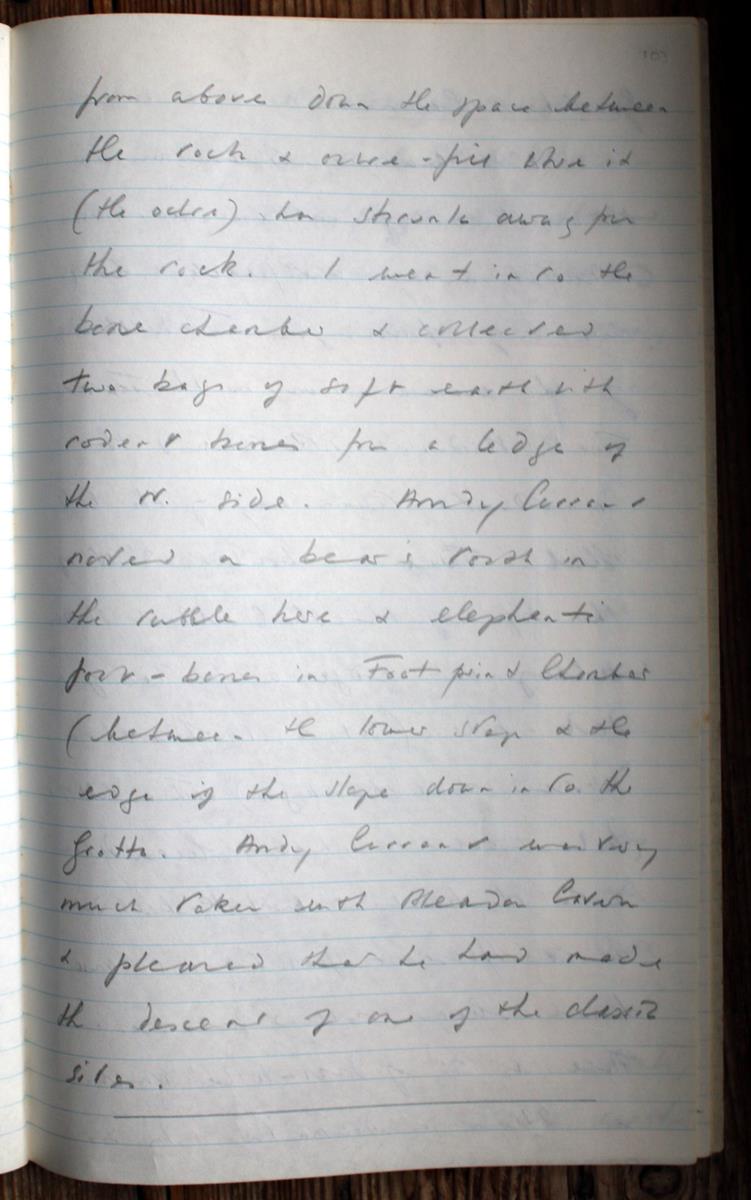 103
from above down the space between
the rock & ochre-fill where it
(the ochre) has shrunk away from
the rock. I went into the
bone chamber & collected
two bags of soft earth with
rodent bones from a ledge of
the N. side. Andy Currant
noted a bear's tooth in
the rubble here & elephant
foot-bones in Footprint Chamber
(between the lower step & the
edge of the slope down into the
Grotto. Andy Currant was very
much taken with Bleadon Cavern
& pleased that he had made
the descent of one of the classic
sites.